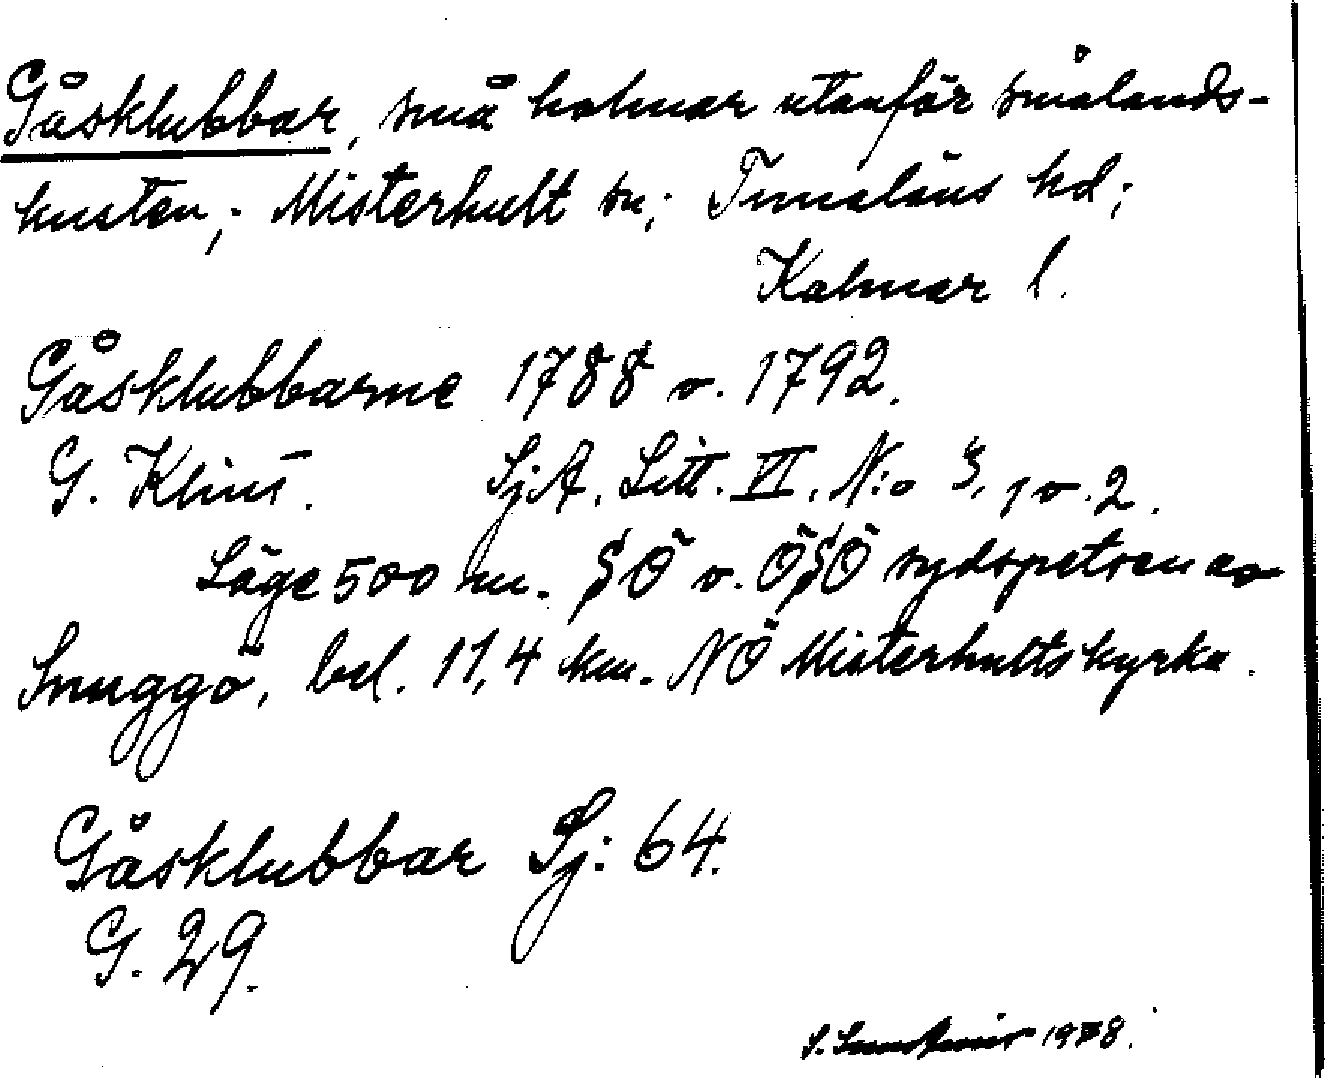 Gåsklubbar, små holmar utanför smålands-
kusten; Misterhult sn; Tunaläns hd;
Kalmar l.
Gåsklubbarne 1788 o. 1792.
G. Klint. SjA. Litt. VI. N:o 3, 1 o. 2.
Läge 500 m. SÖ o. ÖSÖ sydspetsen av
Snuggö, bel. 11,4 km. NÖ Misterhults kyrka.
Gåsklubbar Sj: 64.
G. 29.
S. 1978.